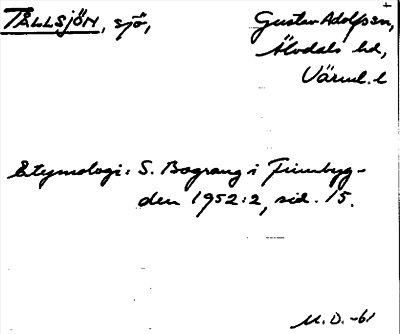 TÅLLSJÖN, sjö, Gustav Adolfs sn,
Älvdals hd,
Värml. l
Etymologi: S. Bograng i Finnbyg-
den 1952:2, sid. 15.
M. D. -61